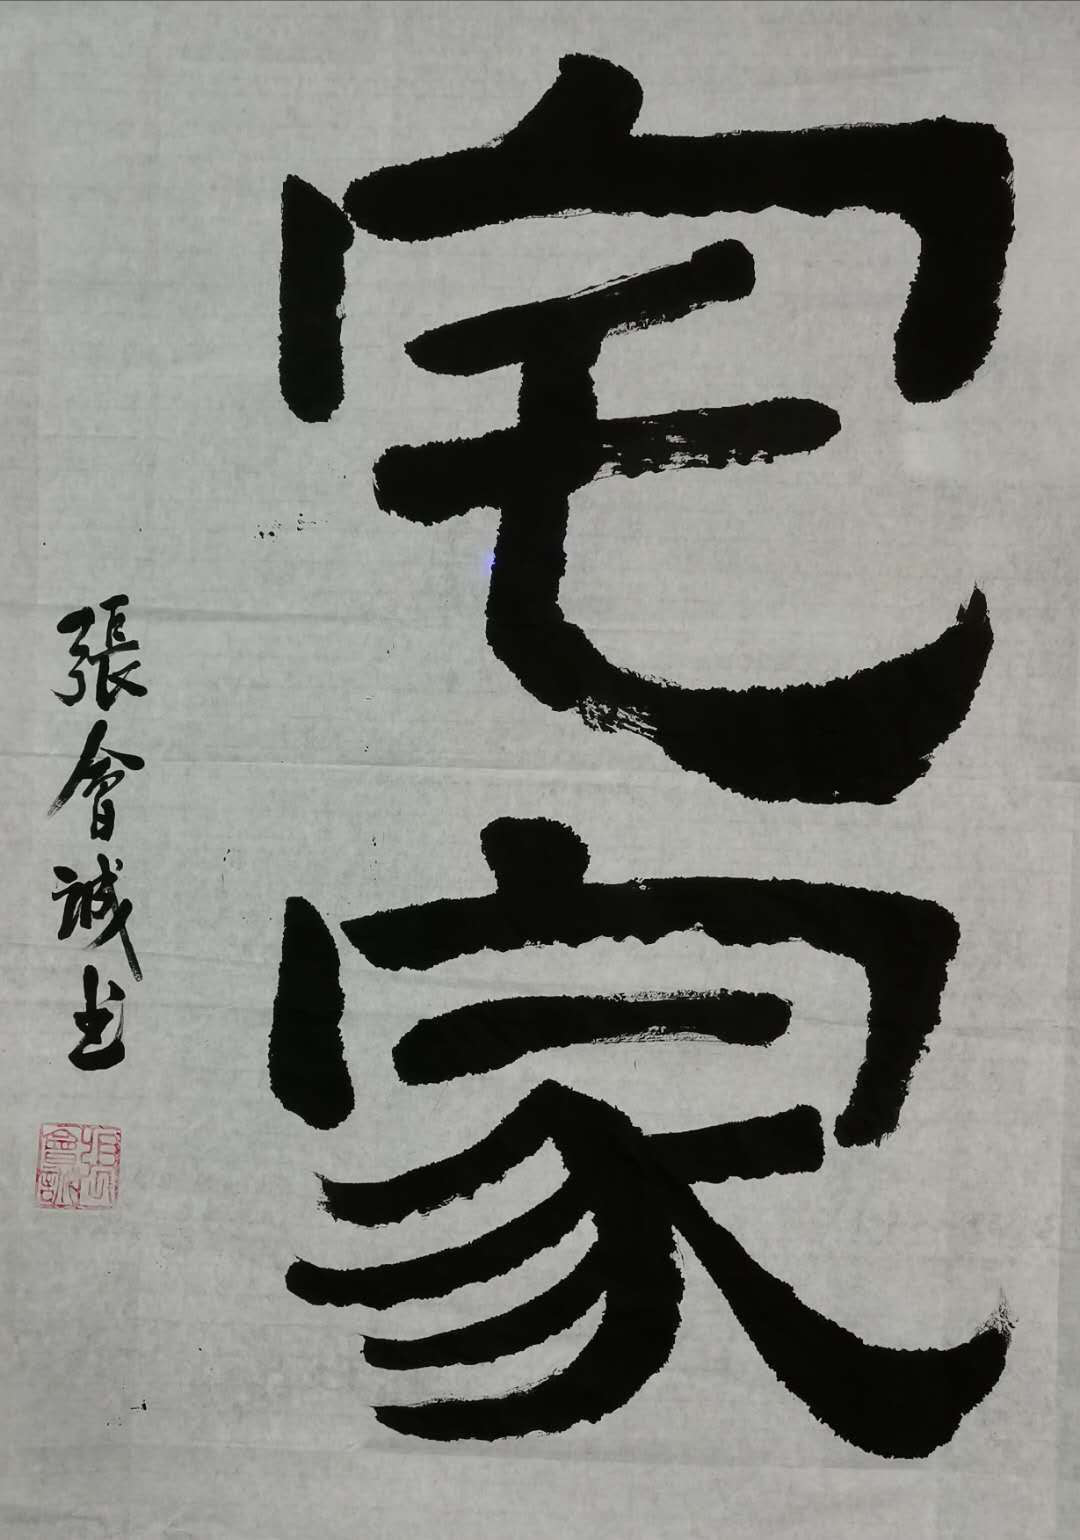 宅家
張會誠书
張會誠